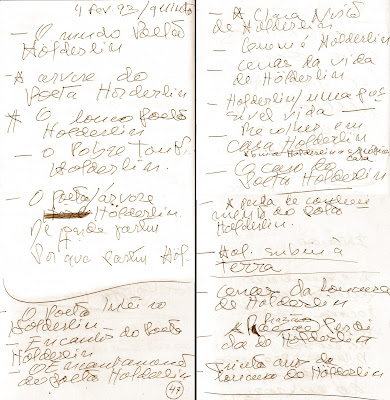 4 Fev. 93 / quinta
— O mudo Poeta
Hölderlin
— A árvore do
Poeta Hölderlin
* O louco Poeta
Hölderlin
— O Pobre
Hölderlin.
— O Poeta/árvore
Hölderlin
De parte
Por que partiu Höl.
— O Poeta Inteiro
Hölderlin
— Encanto do Poeta
Hölderlin
— O Encantamento
do poeta Hölderlin
43
— A Clara Visão
de Hölderlin
— Como é Hölderlin
— cenas da vida
de Hölderlin
— Hölderlin/uma pos
sível vida —
Recolher em
casa Hölderlin
— O caso do
Poeta Hölderlin
— A perda de conheci
mento do poeta
Hölderlin.
— Höl. subiu à
terra
— Cenas da loucura
de Hölderlin
* A Razão Perdi
da de Hölderlin
— trinta anos de
loucura de Hölderlin